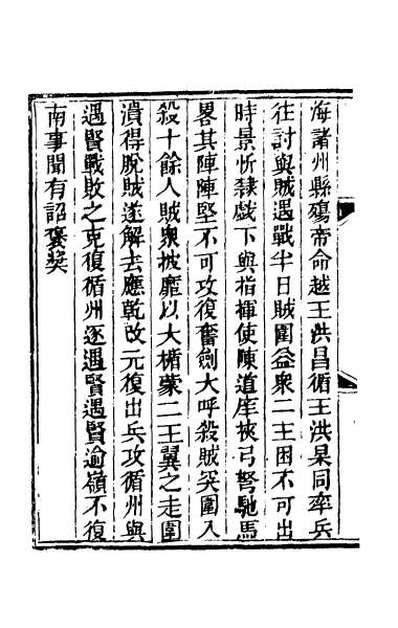 海諸州縣殤帝命越王洪昌循王洪杲同率兵
往討與賊遇戰半日賊圍益衆二主困不可出
時景忻隸戲下與指揮使陳道庠挾弓弩馳馬
畧其陣陣堅不可攻復奮劍大呼殺賊突圍入
殺十餘人賊衆披靡以大楯蒙二王翼之走圍
潰得脫賊遂解去應乾改元復出兵攻循州與
遇賢戰敗之克復循州逐遇賢遇賢逾嶺不復
南事聞有詔褒奖